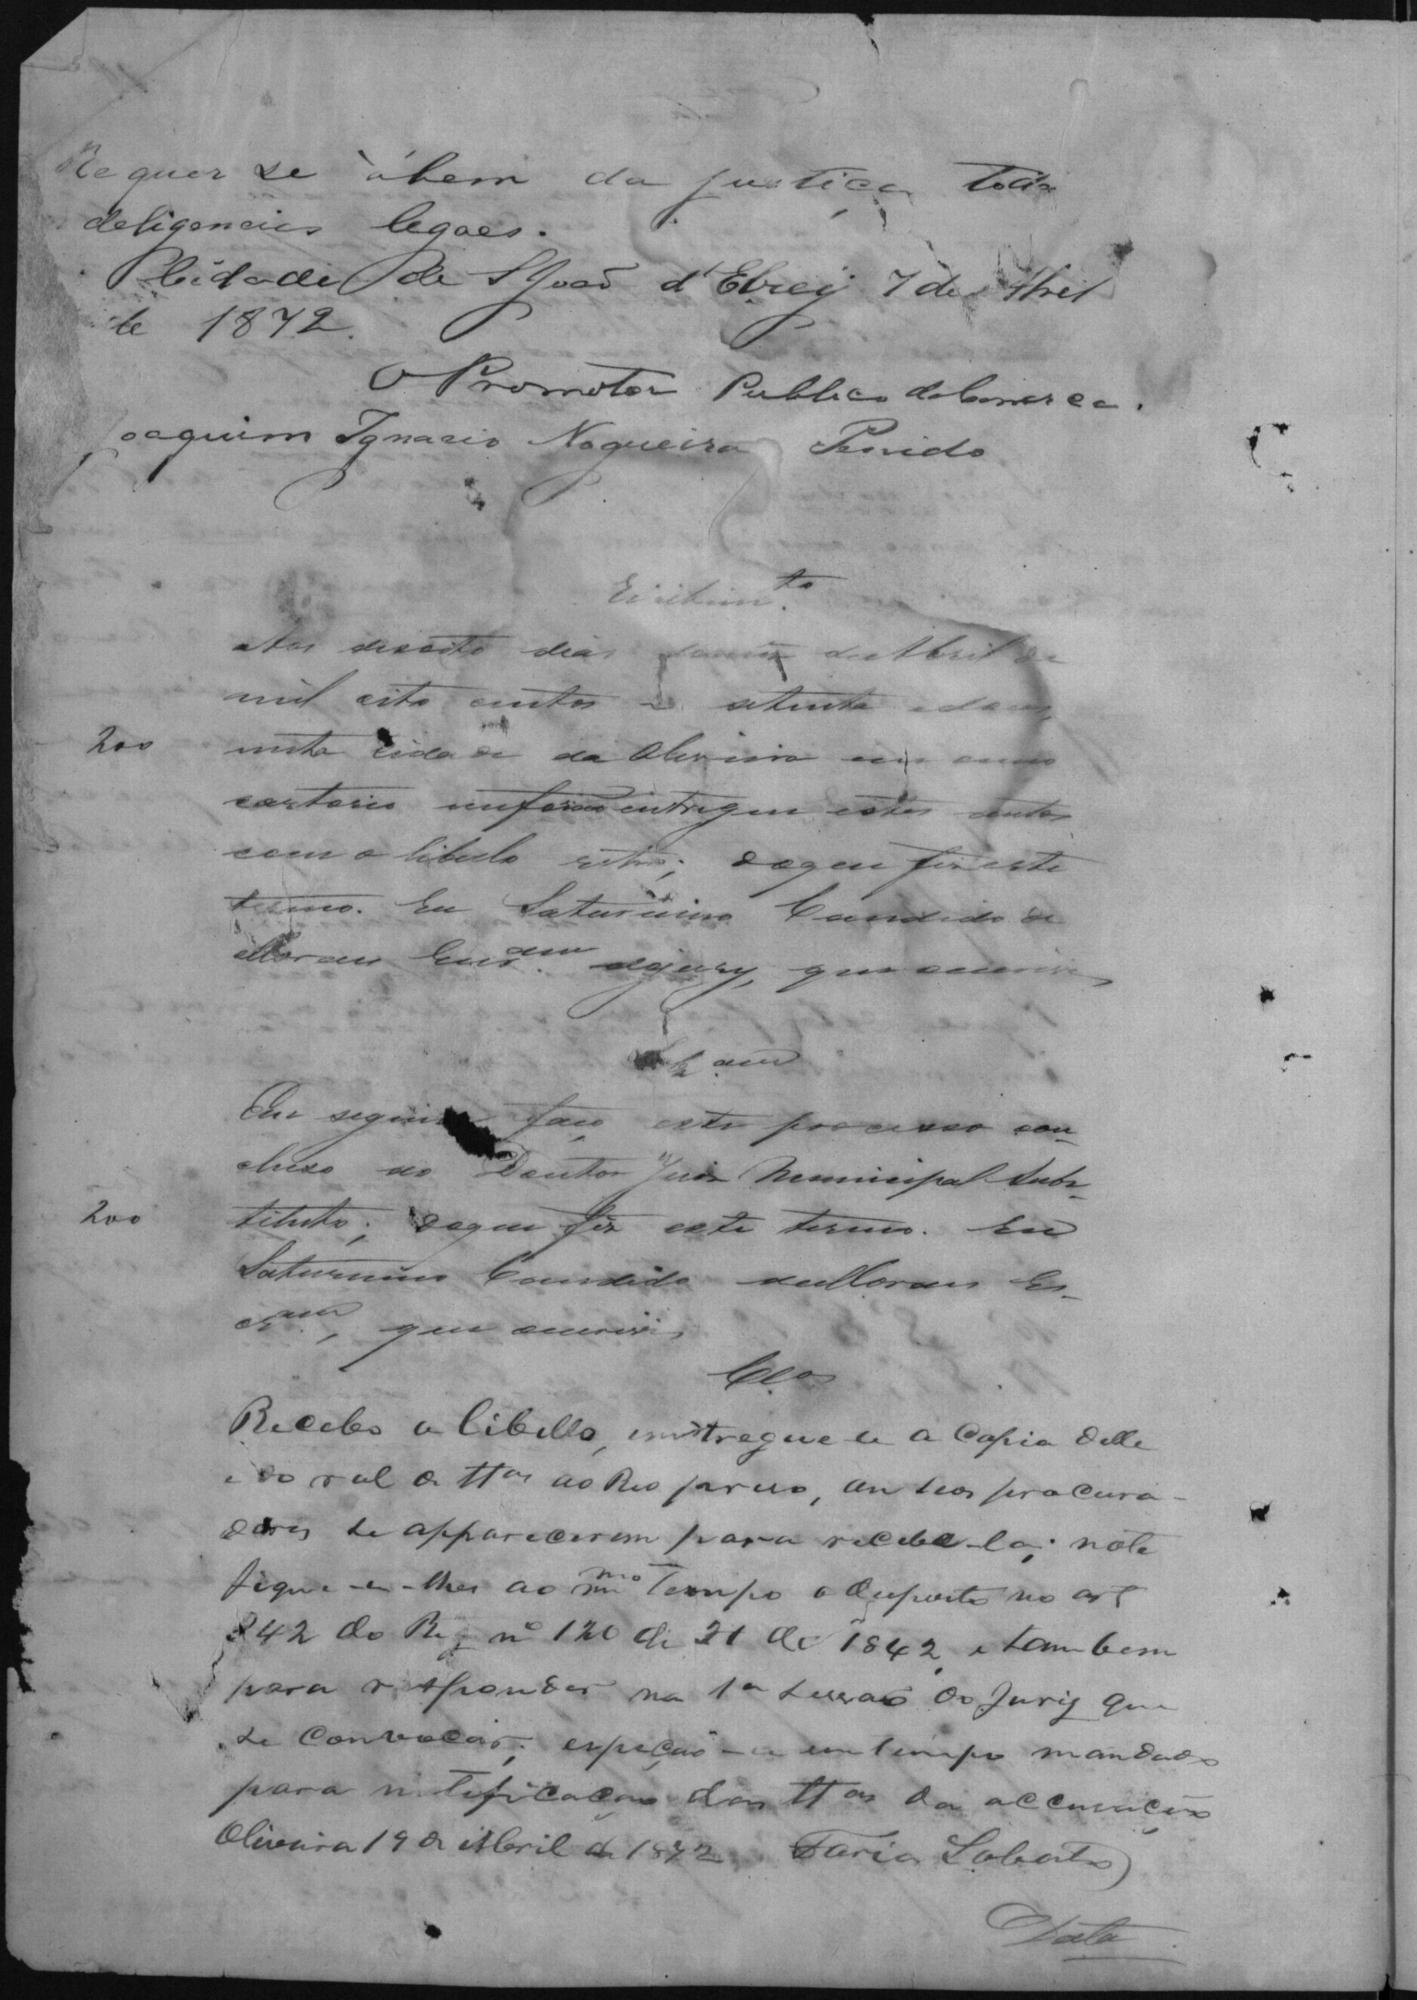 Requer se à bem da justiça todas
deligencias legaes.
Cidade de S João d'Elrey 7 de Abril
de 1872.
O Promotor Publico da Comarca.
Joaquim Ignacio Nogueira Penido
Aos desoito dias de Abril de
mil oito centos e setenta e dous,
200
nesta cidade da Oliveira em meu
cartorio me forão entregues estes autos
com o libello retro; do que fiz este
termo. Eu Saturnino Candido de
Moraes Escr.am do jury, que escrevi
Clzam
Em seguida faço este processo con-
cluso ao Doutor Juiz Municipal Subs-
200
tituto; do que fiz este termo. Eu
Saturnino Candido de Moraes Es-
cr.am, que escrevi
Clos
Recebo o libello, entregue se a Copia delle
e do rol de ttas ao Reo preso, ou seos procura-
dores se apparecerem para recebe-la; note
fique-se-lhes ao mmo tempo o desposto no art
342 do Reg nº 120 de 31 de 1842, e tambem
para responder na 1a sessão do Jury que
se convocar; espeção-se em tempo mandado
para notificação das ttas da accusação
Oliveira 19 de Abril de 1872 Faria Lobato
Data